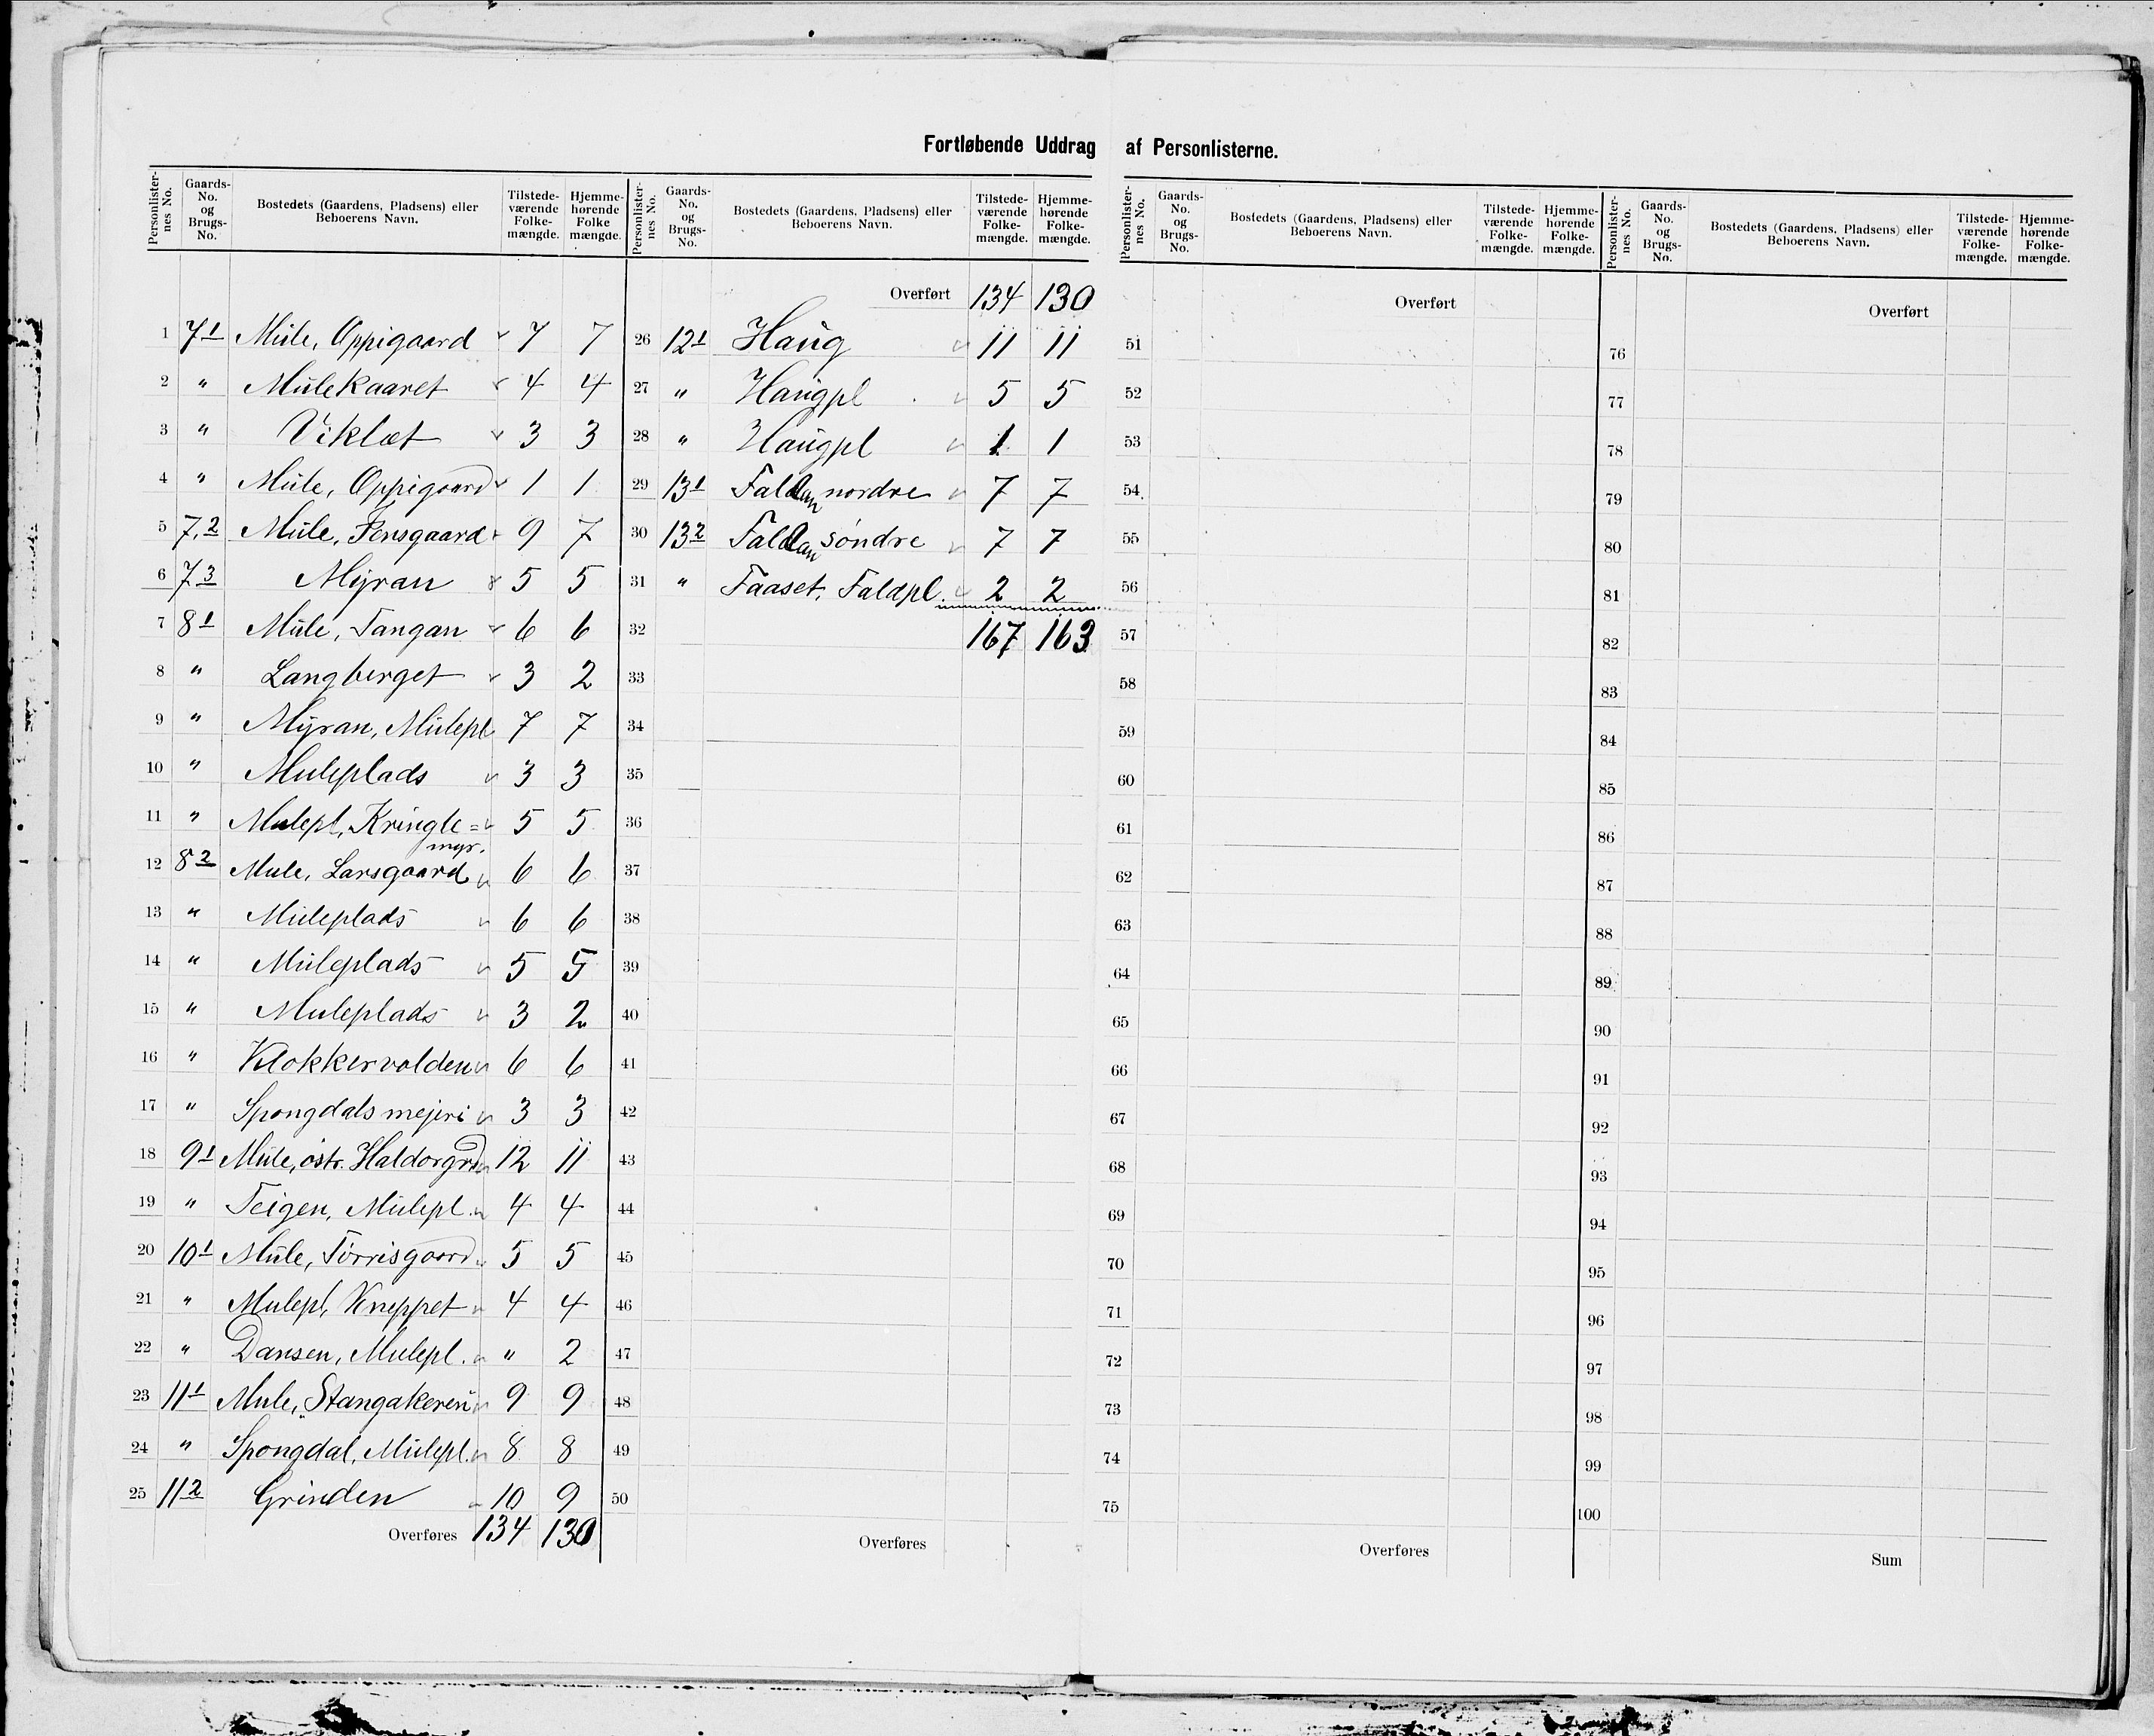 Fortløbende Uddrag af Personlisterne.
Personlister-nes No. Gaards-No. og Brugs-No. Bostedets (Gaardens, Pladsens) eller Beboerens Navn. Tilstede-værende Folke-mængde. Hjemme-hørende Folke mængde.
1 7 1 Mule, Oppigaard 7 7
2 " Mulekaaret 4 4
3 " Viklæt 3 3
4 " Mule, Oppigaard 1 1
5 7,2 Mule, Jensgaard 9 7
6 7 3 Myran 5 5
7 8 1 Mule, Tangan 6 6
8 " Langberget 3 2
9 " Myran, Mulepl 7 7
10 " Muleplads 3 3
11 " Mulepl, Kringle=
myr. 5 5
12 8 2 Mule, Larsgaard 6 6
13 " Muleplads 6 6
14 " Muleplads 5 5
15 " Muleplads 3 2
16 " Klokkervolden 6 6
17 " Spongdals mejeri 3 3
18 9 1 Mule, østr. Haldorgrd 12 11
19 " Teigen, Mulepl. 4 4
20 10 1 Mule, Tørrisgaard 5 5
21 " Mulepl, Kneppet 4 4
22 " Dansen, Mulepl. " 2
23 11 1 Mule, "Stangakeren" 9 9
24 " Spongdal, Mulepl. 8 8
25 11 2 Grinden 10 9
Overføres 134 130
Personlister-nes No. Gaards-No. og Brugs-No. Bostedets (Gaardens, Pladsens) eller Beboerens Navn. Tilstede-værende Folke-mængde. Hjemme-hørende Folke-mængde.
Overført 134 130
26 12 1 Haug 11 11
27 " Haugpl 5 5
28 " Haugpl 1 1
29 13 1 Faldan nordre 7 7
30 13 2 Faldan søndre 7 7
31 " Faaset, Faldpl. 2 2
32 167 163
33
34
35
36
37
38
39
40
41
42
43
44
45
46
47
48
49
50
Overføres
Personlister-nes No. Gaards-No. og Brugs-No. Bostedets (Gaardens, Pladsens) eller Beboerens Navn. Tilstede-værende Folke-mængde. Hjemme-hørende Folke-mængde.
Overført
51
52
53
54
55
56
57
58
59
60
61
62
63
64
65
66
67
68
69
70
71
72
73
74
75
Overføres
Personlister-nes No. Gaards-No. og Brugs-No. Bostedets (Gaardens, Pladsens) eller Beboerens Navn. Tilstede-værende Folke-mængde. Hjemme-hørende Folke-mængde.
Overført
76
77
78
79
80
81
82
83
84
85
86
87
88
89
90
91
92
93
94
95
96
97
98
99
100
Sum